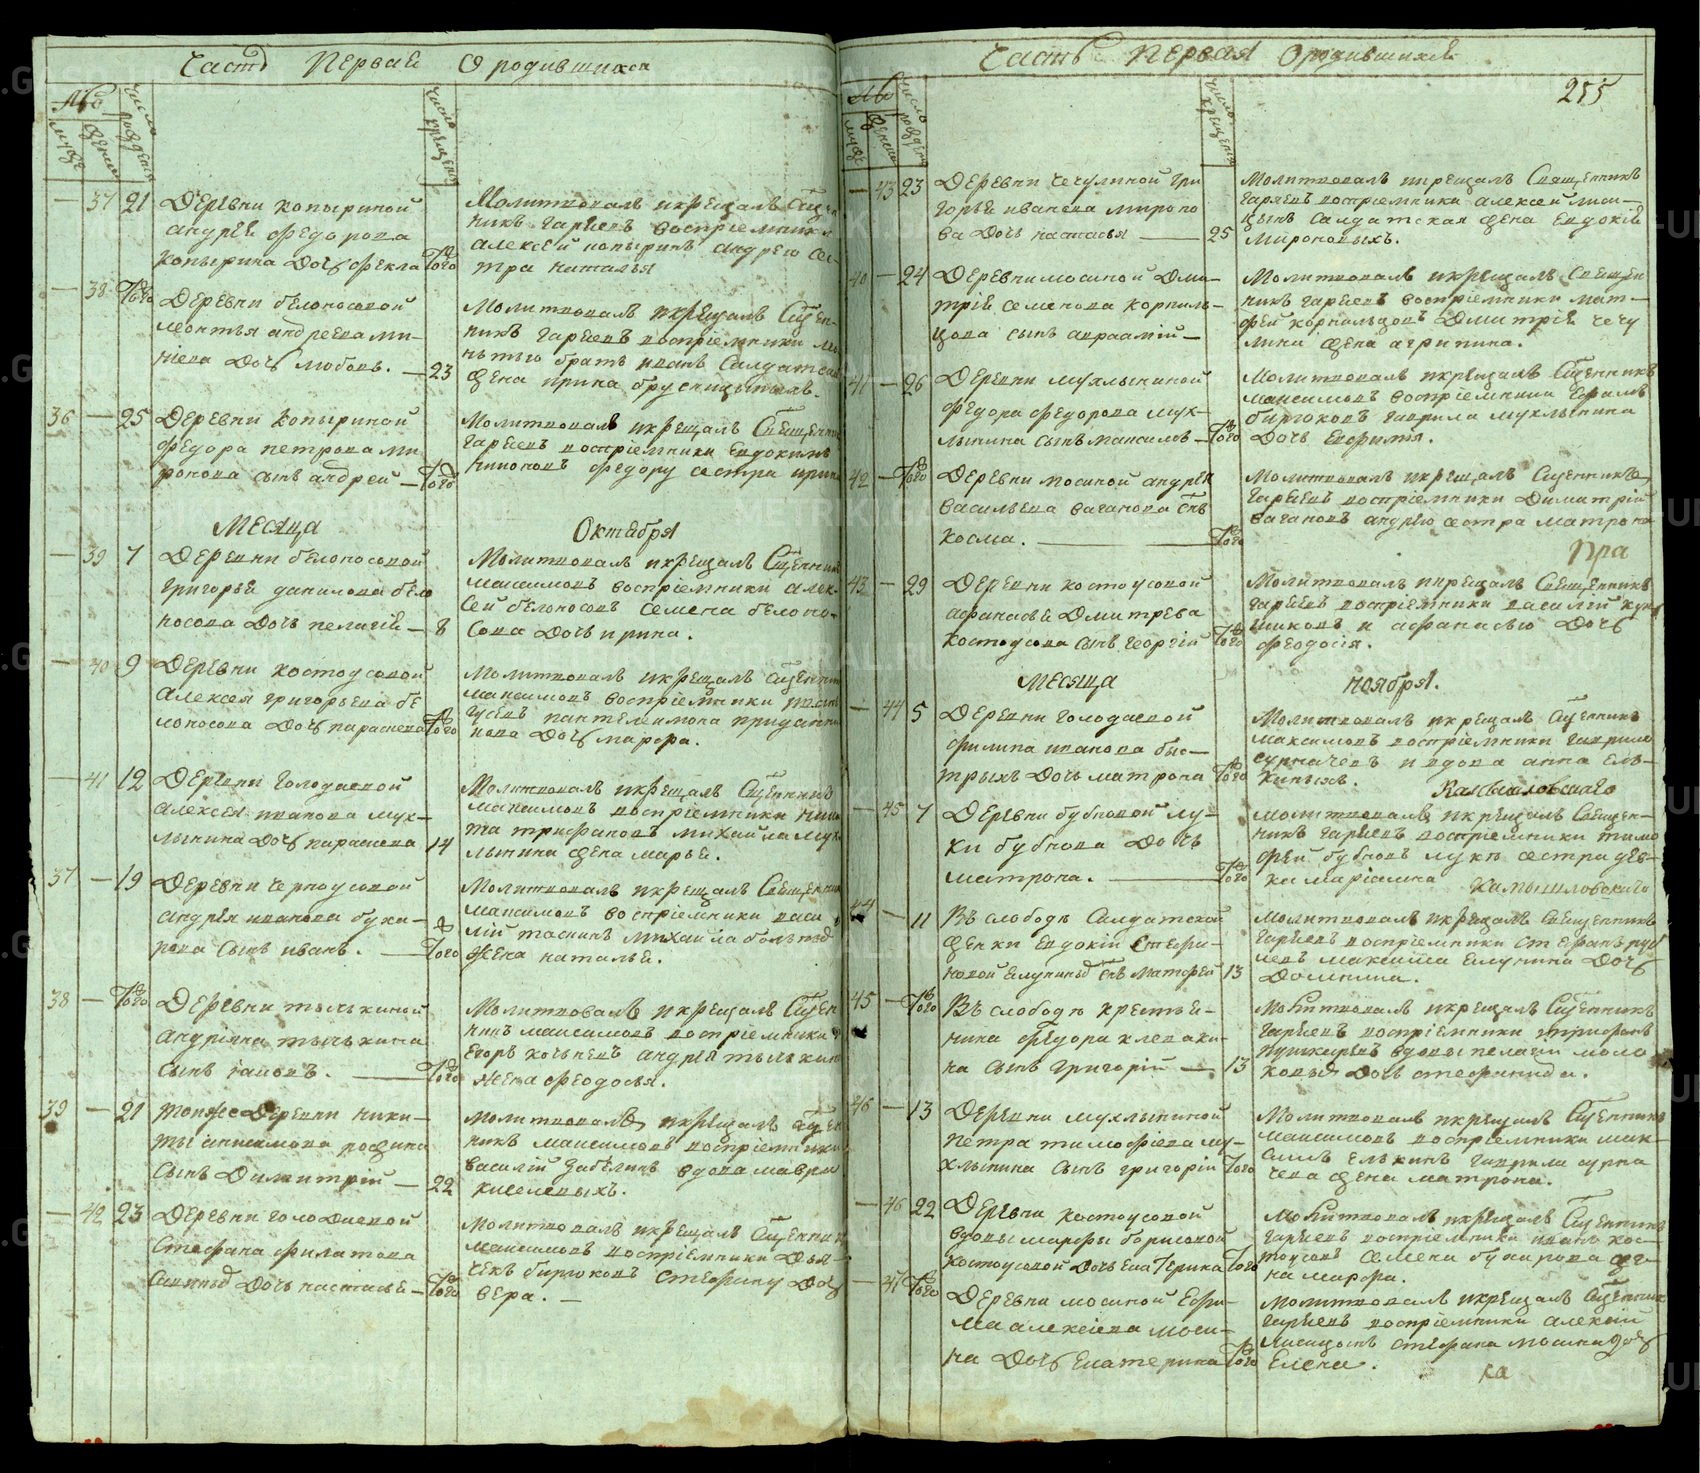 Часть Первая О родившихся
№
мужс
женс
число рождения
число крещения
— 37 21 Деревни копыриной
андрея федорова
копырина Дочь фекла того
Молитвовалъ икрещалъ Сщен
никъ гаряевъ восприемники
алексей копыринъ андрею сес
тра наталья
— 38 того Деревни белоносовой
леонтья андреева ми
неева Дочь любовь. — 23
Молитвовалъ икрещалъ Сщен
никъ гаряевъ восприемники ле
нтью братъ иванъ Салдатская
жена ирина брусницыныхъ.
36 — 25 Деревни копыриной
федора петрова ми
ронова сынъ андрей — того
Молитвовалъ икрещалъ Свещенни
гаряевъ восприемники Евдокимъ
федору сестра ирина
Месяца Октября
— 39 7 Деревни белоносовой
григорья данилова бело
носова Дочь пелагия — 8
Молитвовалъ икрещалъ Сщенникъ
максимовъ восприемники алек
сей белоносовъ Семена белоно-
сова Дочь ирина.
— 40 9 Деревни костоусовой
алексея григорьева бе
лоносова Дочь параскева того
Молитвовалъ икрещалъ Сщенникъ
максимовъ восприемники
гусевъ пантелеимона
нова Дочь марфа.
— 41 12 Деревни голодаевой
алексея иванова мух-
лынина Дочь параскева 14
Молитвовалъ икрещалъ Сщенникъ
максимовъ восприемники ники
та трифановъ михайла мух
лынина жена марья.
37 — 19 Деревни черноусовой
андрея иванова буха-
рова Сынъ иванъ. — того
Молитвовалъ икрещалъ Свещенник
максимовъ восприемники васи
лий михайла
жена наталья.
38 — того Деревни тылькиной
андрияна тылькина
сынъ иаковъ. — того
Молитвовалъ икрещалъ Сщен
никъ максимовъ восприемники
Егоръ андрея тылькин
жена феодосья.
39 — 21 тояже Деревни ники-
ты анисимова рожина
Сынъ Димитрий — 22
Молитвовалъ икрещалъ Сщен
никъ максимовъ восприемники
василий забелинъ вдова мавра
киселевыхъ.
— 42 23 Деревни голодаевой
Стефана филатова
Дочь настасья — того
Молитвовалъ икрещалъ Сщенник
максимовъ восприемники Дья-
чекъ бирюковъ Стефану Дочь
вера. —
Часть Первая О родившихся
255
№
мужс
женс
число рождения
число крещения
— 43 23 Деревни чечулиной гри
горья иванова мироно
ва Дочь настасья — 25
Молитвовалъ икрещалъ Священникъ
гаряевъ восприемники алексей лиси-
цынъ Салдатская жена Евдокия
мироновыхъ.
40 — 24 Деревни мосиной Дми-
трия семенова корниль-
цова сынъ авраамий —
Молитвовалъ икрещалъ Свещен
никъ гаряевъ восприемники мат-
фей корнильцовъ Дмитрия чечу
лина жена агрипина.
41 — 26 Деревни мухлыниной
федора федорова мух-
лынина сынъ максимъ — того
Молитвовалъ икрещалъ Сщенникъ
максимовъ восприемники Ефимъ
бирюковъ гаврила мухлынина
Дочь Евфимия.
42 — того Деревни мосиной андрея
васильева ваганова Снъ
косма. — того
Молитвовалъ икрещалъ Сщенникъ
гаряевъ восприемники Димитрий
вагановъ андрею сестра матрона
Пра
43 — 29 Деревни костоусовой
афанасья Дмитрева
костоусова Сынъ георгий того
Молитвовалъ икрещалъ Свещенникъ
гаряевъ восприемники василий
и афанасью Дочь
феодосия.
Месяца ноября.
— 44 5 Деревни голодаевой
филипа иванова бы-
трыхъ Дочь матрона того
Молитвовалъ икрещалъ Сщенникъ
максимовъ восприемники гаврила
сурначевъ и вдова анна Ель-
киныхъ.
Камышловскаго
— 45 7 Деревни бубновой лу-
ки бубнова Дочь
матрона. — того
Молитвовалъ икрещалъ Свещен-
никъ гаряевъ восприемники тимо
фей бубновъ луке сестра дев-
ка мариамна
Камышловскаго
44 — 11 Въ слободе Салдатской
женки Евдокии Стефа-
новой Елуниной Снъ матфей 13
Молитвовалъ икрещалъ Свещенникъ
гаряевъ восприемники Стефанъ
максима Елунина Дочь
Домнина.
45 — того Въ слободе крестья-
нина Федора клевахи-
на Сынъ григорий — 13
Молитвовалъ икрещалъ Сщенникъ
гаряевъ восприемники трифанъ
пушкаревъ вдовы пелагии моло
ковыхъ Дочь стефанида.
46 — 13 Деревни мухлыниной
петра тимофеева му-
хлынина Сынъ григорий того
Молитвовалъ икрещалъ Сщенникъ
максимовъ восприемники мак-
симъ елькинъ гаврила сурна
чева жена матрона.
— 46 22 Деревни костоусовой
вдовы марфы борисовой
костоусовой Дочь Екатерина того
Молитвовалъ икрещалъ Сщенникъ
гаряевъ восприемники иванъ кос-
тоусовъ Семена бухарова же-
на марфа.
— 47 того Деревни мосиной Ефи-
ма алексеева моси-
на Дочь Екатерина того
Молитвовалъ икрещалъ Сщенник
гаряевъ восприемники алексей
лисицынъ стефана мосина дочь
Елена.
ка